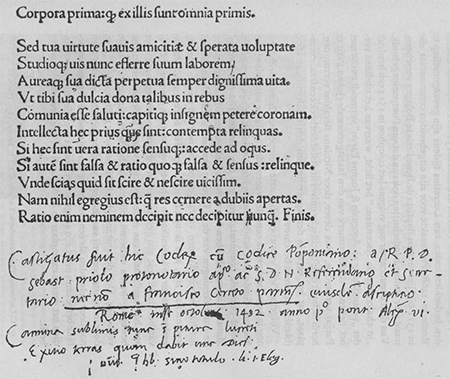 Corpora prima: q̃ ex illis sunt omnia primis.
Sed tua uirtute suauis amicitiæ & sperata uoluptate
Studioq; uis nunc efferre suum laborem;
Aureaq; sua dicta perpetua semper dignissima uita.
Vt tibi sua dulcia dona talibus in rebus
Cõmunia esse saluti: capitiq; insignem petere coronam.
Intellecta hec prius q̃uis sint: contempta relinquas.
Si hec sint uera ratione sensuq; accede ad oqus.
Si autẽ sint falsa & ratio quoq; falsa & sensus :relinque.
Vnde scias quid sit scire & nescire uicissim.
Nam nihil egregius est: q̃ res cernere a dubiis apertas.
Ratio enim neminem decipit nec decipitur nunq̃. Finis.
Castigatus fuit hic Codex cũ Codice Põponiano: a R. P. D.
Sebast. priolo protonotario apco ac S. D. N. Referendario et Secre-
tario: nec nõ a Francisco Cereto eiusdẽ discipulo.
Rome 1492 anno po pont. Alex. vi.
Carmina sublimis
Exitio terras quum dabit una dies.